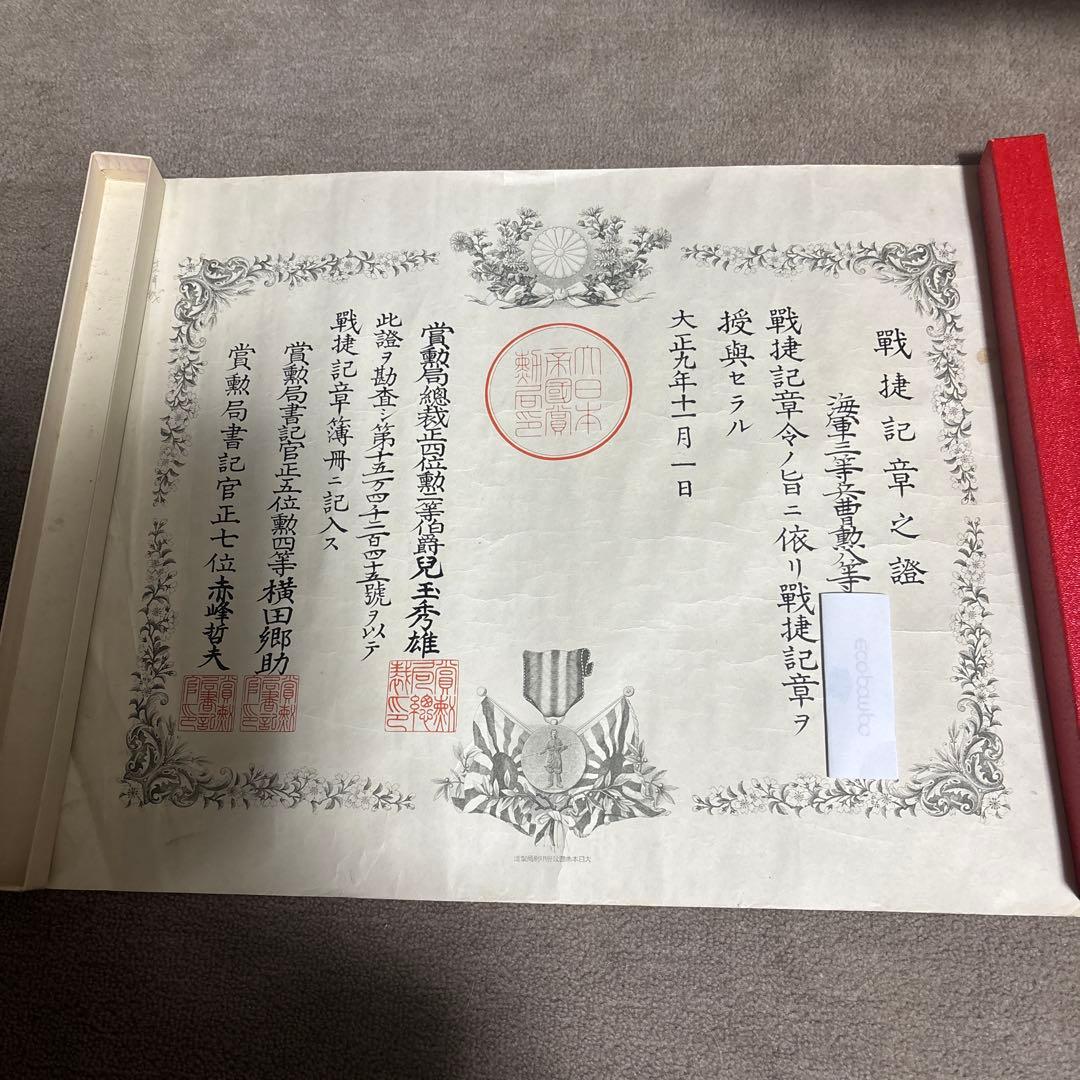 戰捷記章之證
海軍三等兵曹勲八等
戰捷記章令ノ旨ニ依リ戰捷記章ヲ
授與セラル
大正九年十一月一日
大日本
帝國賞
勲局印
賞勲局總裁正四位勲二等伯爵兒玉秀雄
賞勲
局總
裁印
此證ヲ勘査シ第十五万四千二百四十五號ヲ以テ
戰捷記章簿册ニ記入ス
賞勲局書記官正五位勲四等橫田郷助
賞勲
局書記
官印
賞勲局書記官正七位赤峰哲夫
賞勲
局書記
官印